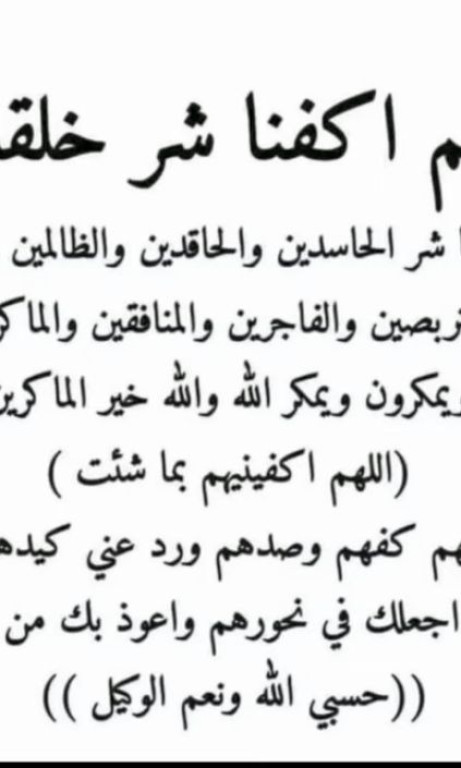 م اكفنا شر خلقـ
ا شر الحاسدين والحاقدين والظالمين
ـربصين والفاجرين والمنافقين والماكر
ويمكرون ويمكر الله والله خير الماكرين
(اللهم اكفينيهم بما شئت )
ـهم كفهم وصدهم ورد عني كيدهـ
اجعلك في نحورهم واعوذ بك من
((حسبي الله ونعم الوكيل ))